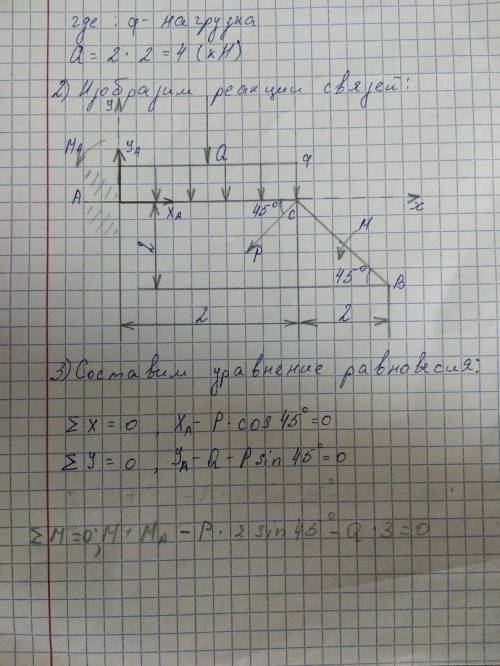 где : q - нагрузка
Q = 2 · 2 = 4 (кН)
2) Изобразим реакции связей:
y
MA yA Q q
A xA 45° C x
P M
2 45° B
2 2
3) Составим уравнение равновесия:
Σ X = 0 , XA - P · cos 45° = 0
Σ Y = 0 , YA - Q - P sin 45° = 0
Σ M = 0; M + MA - P · 2 sin 45° - Q · 3 = 0